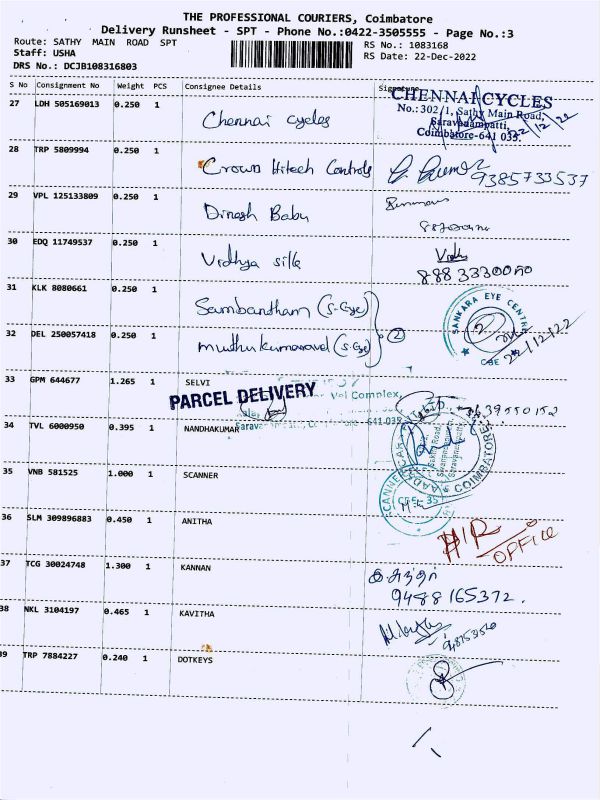 THE PROFESSIONAL COURIERS, Coimbatore
Delivery Runsheet - SPT - Phone No.:0422-3505555 - Page No.:3
Route: SATHY MAIN ROAD SPT
RS No.: 1083168
Staff: USHA
RS Date: 22-Dec-2022
DRS No.: DCJB108316803
S No Consignment No Weight PCS Consignee Details Signature
27 LDH 505169013 0.250 1 Chennai cycles
CHENNAI CYCLES
No.: 302/1, Sathy Main Road,
Saravanampatti,
Coimbatore-641 035.
22/12/22
28 TRP 5809994 0.250 1 Crown Hitech Controls
9385733537
29 VPL 125133809 0.250 1 Dinesh Babu
30 EDQ 11749537 0.250 1 Vidhya silk
31 KLK 8080661 0.250 1 Sambandham (S-Eye)
32 DEL 250057418 0.250 1 muthukumaravel (S-Eye)
2
SANKARA EYE CENTRE
CBE
22/12/22
33 GPM 644677 1.265 1 SELVI
PARCEL DELIVERY
Vel Complex,
641 035
34 TVL 6000950 0.395 1 NANDHAKUMAR
35 VNB 581525 1.000 1 SCANNER
COIMBATORE
36 SLM 309896883 0.450 1 ANITHA
H/R
OFFICE
37 TCG 30024748 1.300 1 KANNAN
9488165372.
38 NKL 3104197 0.465 1 KAVITHA
39 TRP 7884227 0.240 1 DOTKEYS